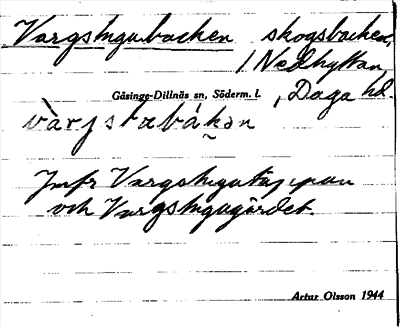 Vargstugubacken skogsbacke,
/ Nedhyttan,
Gåsinge-Dillnäs sn, Söderm. l. , Daga hd.
vàrjstabákən
Jmfr Vargstugutäppan
och Vargstugugärdet.
Artur Olsson 1944